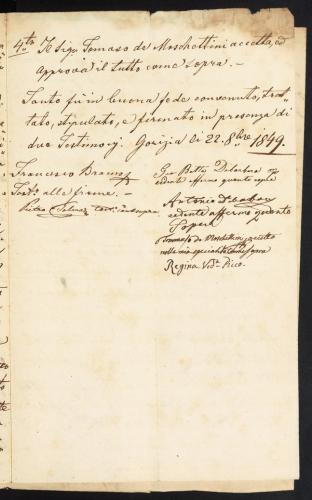 4to Il Sigr Tomaso de Moschettini accetta, ed
approva il tutto come sopra. –
Tanto fù in buona fede convenuto, trat-
tato, stipulato, e firmato in presenza di
due Testimonj. Gorizia li 22. 8bre 1849.
Francesco
Testo alle firme. –
Pietro Test: come sopra
Gio Batta
cedente affermo quanto sopra
Antonio
cedente affermo quanto
sopra
Tommaso de Moschettini accetto
nella mia specialità come sopra
Regina Vda Pico.